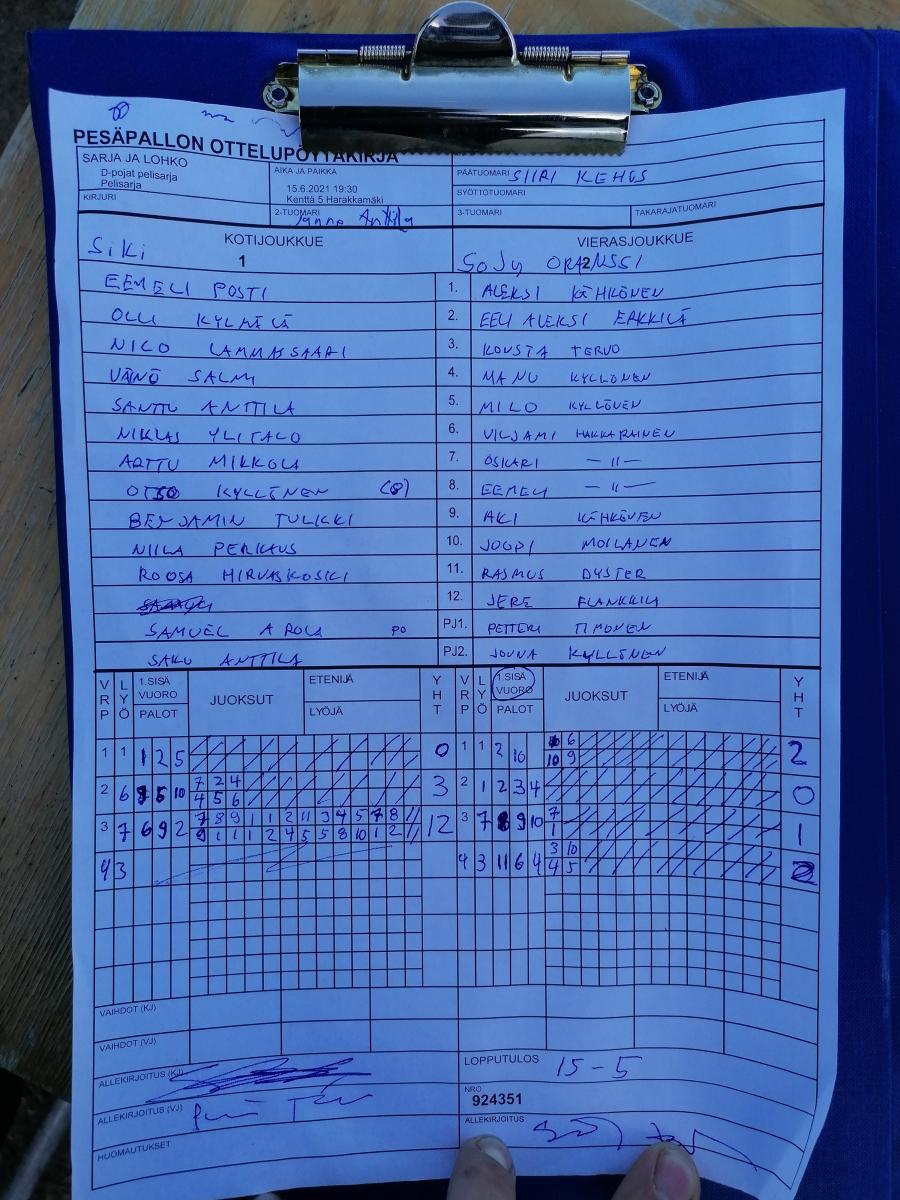 PESÄPALLON OTTELUPÖYTÄKIRJA
SARJA JA LOHKO
D-pojat pelisarja
Pelisarja
AIKA JA PAIKKA
15.6.2021 19:30
Kenttä 5 Harakkamäki
PÄÄTUOMARI SIIRI KEHUS
SYÖTTÖTUOMARI
KIRJURI
2-TUOMARI Janne Anttila
3-TUOMARI
TAKARAJATUOMARI
KOTIJOUKKUE
SiKi
1
VIERASJOUKKUE
SoJy ORANSSI
2
EEMELI POSTI 1. ALEKSI KÄHKÖNEN
OLLI KYLMÄLÄ 2. EELI ALEKSI ERKKILÄ
NILO LAMMASSAARI 3. KOUSTA TERVO
VÄINÖ SALMI 4. MANU KYLLÖNEN
SANTTU ANTTILA 5. MILO KYLLÖNEN
NIKLAS YLITALO 6. VILJAMI HAKKARAINEN
ARTTU MIKKOLA 7. OSKARI —II—
OTSO KYLLÖNEN (8) 8. EEMELI —II—
BENJAMIN TULKKI 9. AKI KÄHKÖNEN
NIILA PERKAUS 10. JOOPI MOILANEN
ROOSA HIRVASKOSKI 11. RASMUS DYSTER
12. JERE FLANKKILA
SAMUEL AROLA PO PJ1. PETTERI TIMONEN
SAKU ANTTILA PJ2. JONNA KYLLÖNEN
VRP LYÖ 1.SISÄ VUORO PALOT JUOKSUT ETENIJÄ LYÖJÄ YHT VRP LYÖ 1.SISÄ VUORO PALOT JUOKSUT ETENIJÄ LYÖJÄ YHT
1 1 1 2 5 0 1 1 2 10 6 10 9 2
2 6 5 10 7 2 4 3 2 1 2 3 4 0
4 5 6
3 7 6 9 2 7 8 9 1 1 2 11 3 4 5 7 8 12 3 7 8 9 10 7 1
9 1 1 1 2 4 5 5 8 10 1 2 1
4 3 4 3 11 6 4 3 10 2
4 5
VAIHDOT (KJ)
VAIHDOT (VJ)
ALLEKIRJOITUS (KJ)
LOPPUTULOS 15-5
ALLEKIRJOITUS (VJ)
NRO
924351
HUOMAUTUKSET
ALLEKIRJOITUS